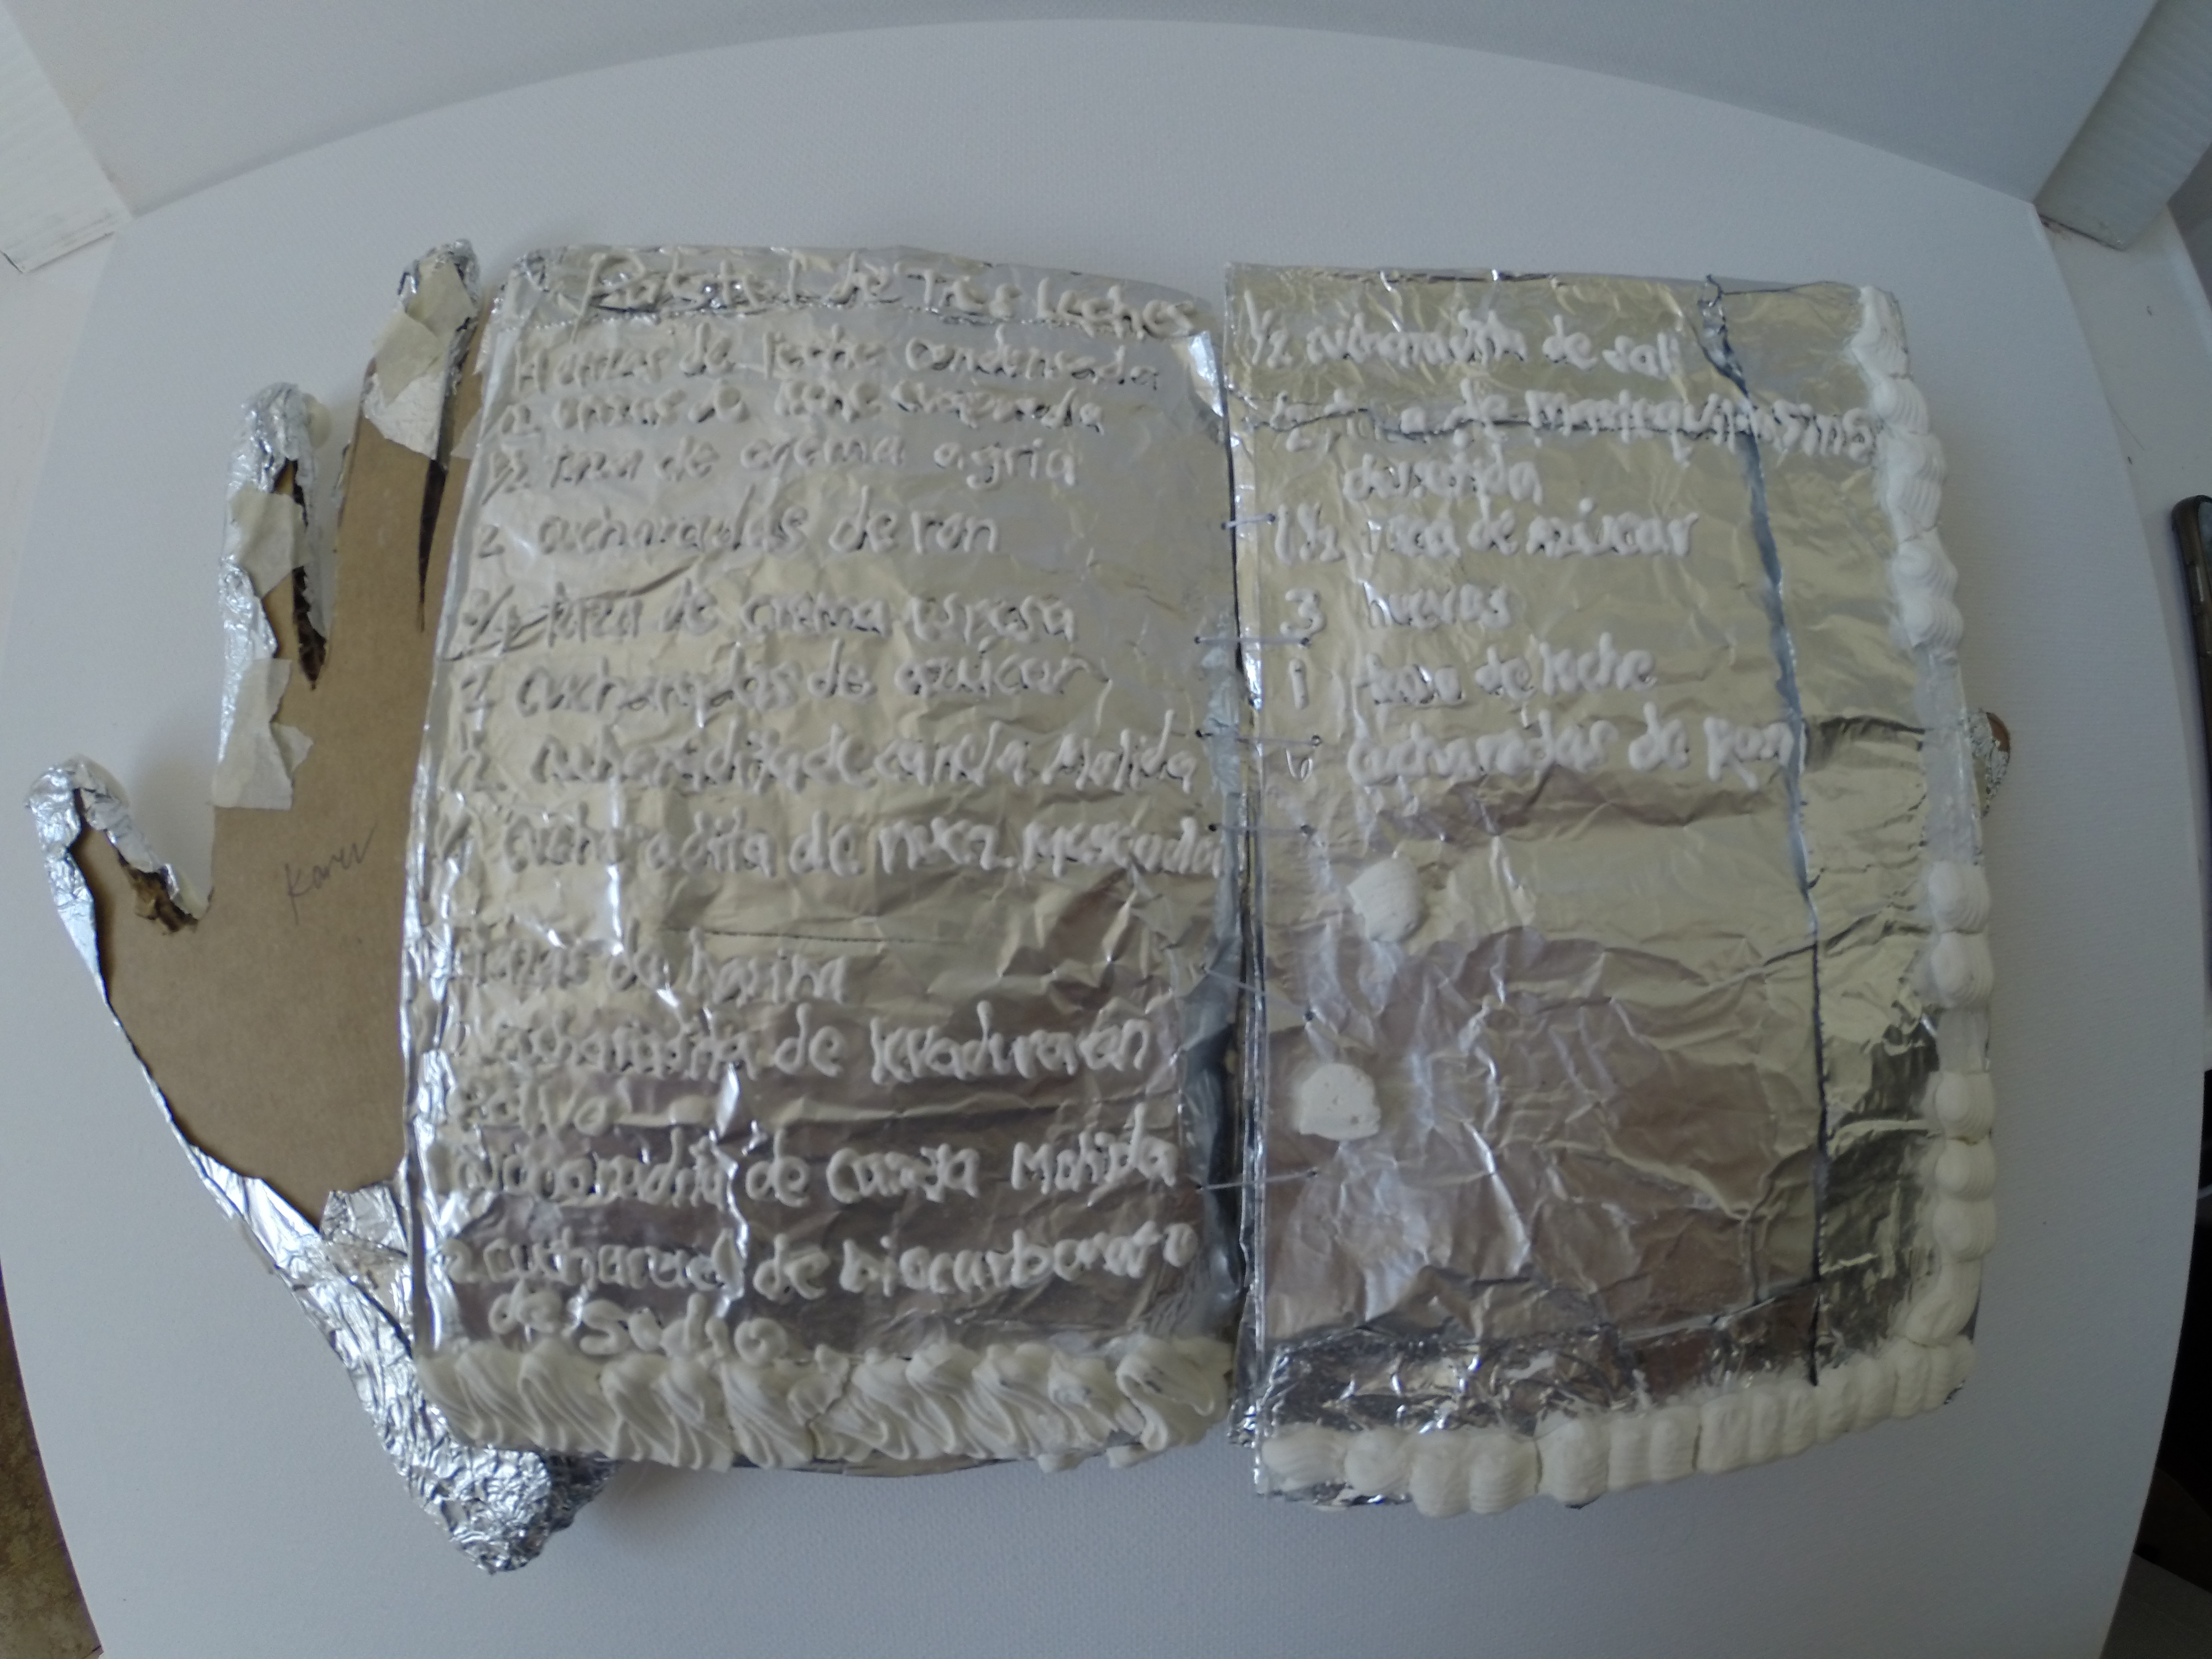 Pastel de Tres Leches
14 onzas de leche condensada
12 onzas de leche evaporada
1/2 taza de crema agria
2 cucharadas de ron
taza de crema espesa
2 cucharadas de azúcar
cucharadita de canela Molida
cucharadita de nuez Moscada
tazas de harina
cucharadita de
de Molida
de biocarbonato
de Sodio
1/2 cucharadita de sal
de Mantequilla sin
derretida
1 1/2 taza de azúcar
3 huevos
1 taza de leche
6 cucharadas de Ron
Karen